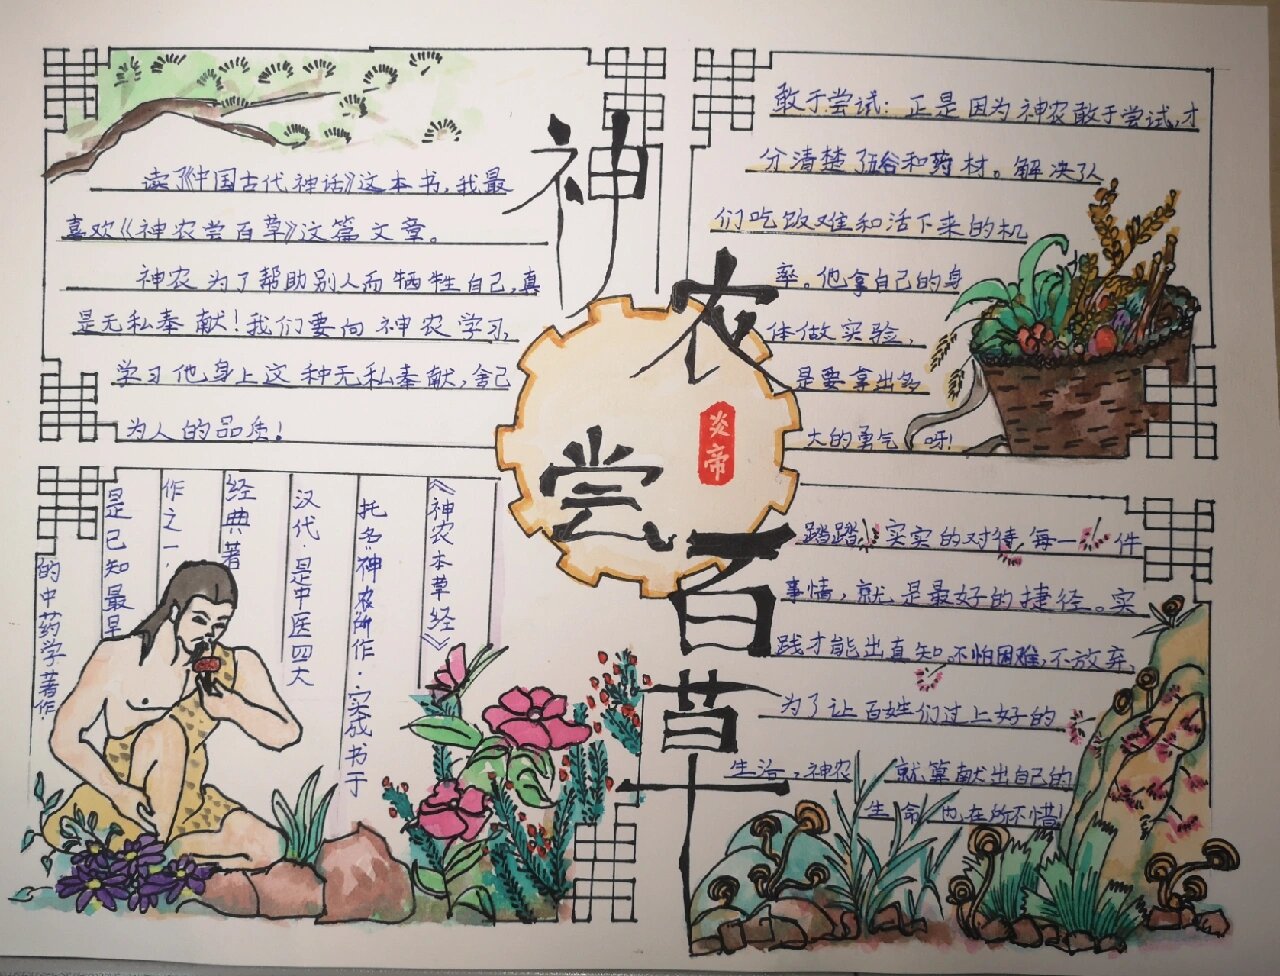 神农尝百草
炎帝
读了《中国古代神话》这本书,我最
喜欢《神农尝百草》这篇文章。
神农为了帮助别人而牺牲自己,真
是无私奉献!我们要向神农学习,
学习他身上这种无私奉献,舍己
为人的品质!
敢于尝试:正是因为神农敢于尝试,才
分清楚了五谷和药材。解决了人
们吃饭难和活下来的机
率。他拿自己的身
体做实验,
是要拿出多
大的勇气呀!
《神农本草经》
托名"神农"所作.实成书于
汉代.是中医四大
经典著
作之一.
是已知最早
的中药学著作.
踏踏实实的对待每一件
事情,就是最好的捷径。实
践才能出真知,不怕困难,不放弃,
为了让百姓们过上好的
生活,神农就算献出自己的
生命,也在所不惜!